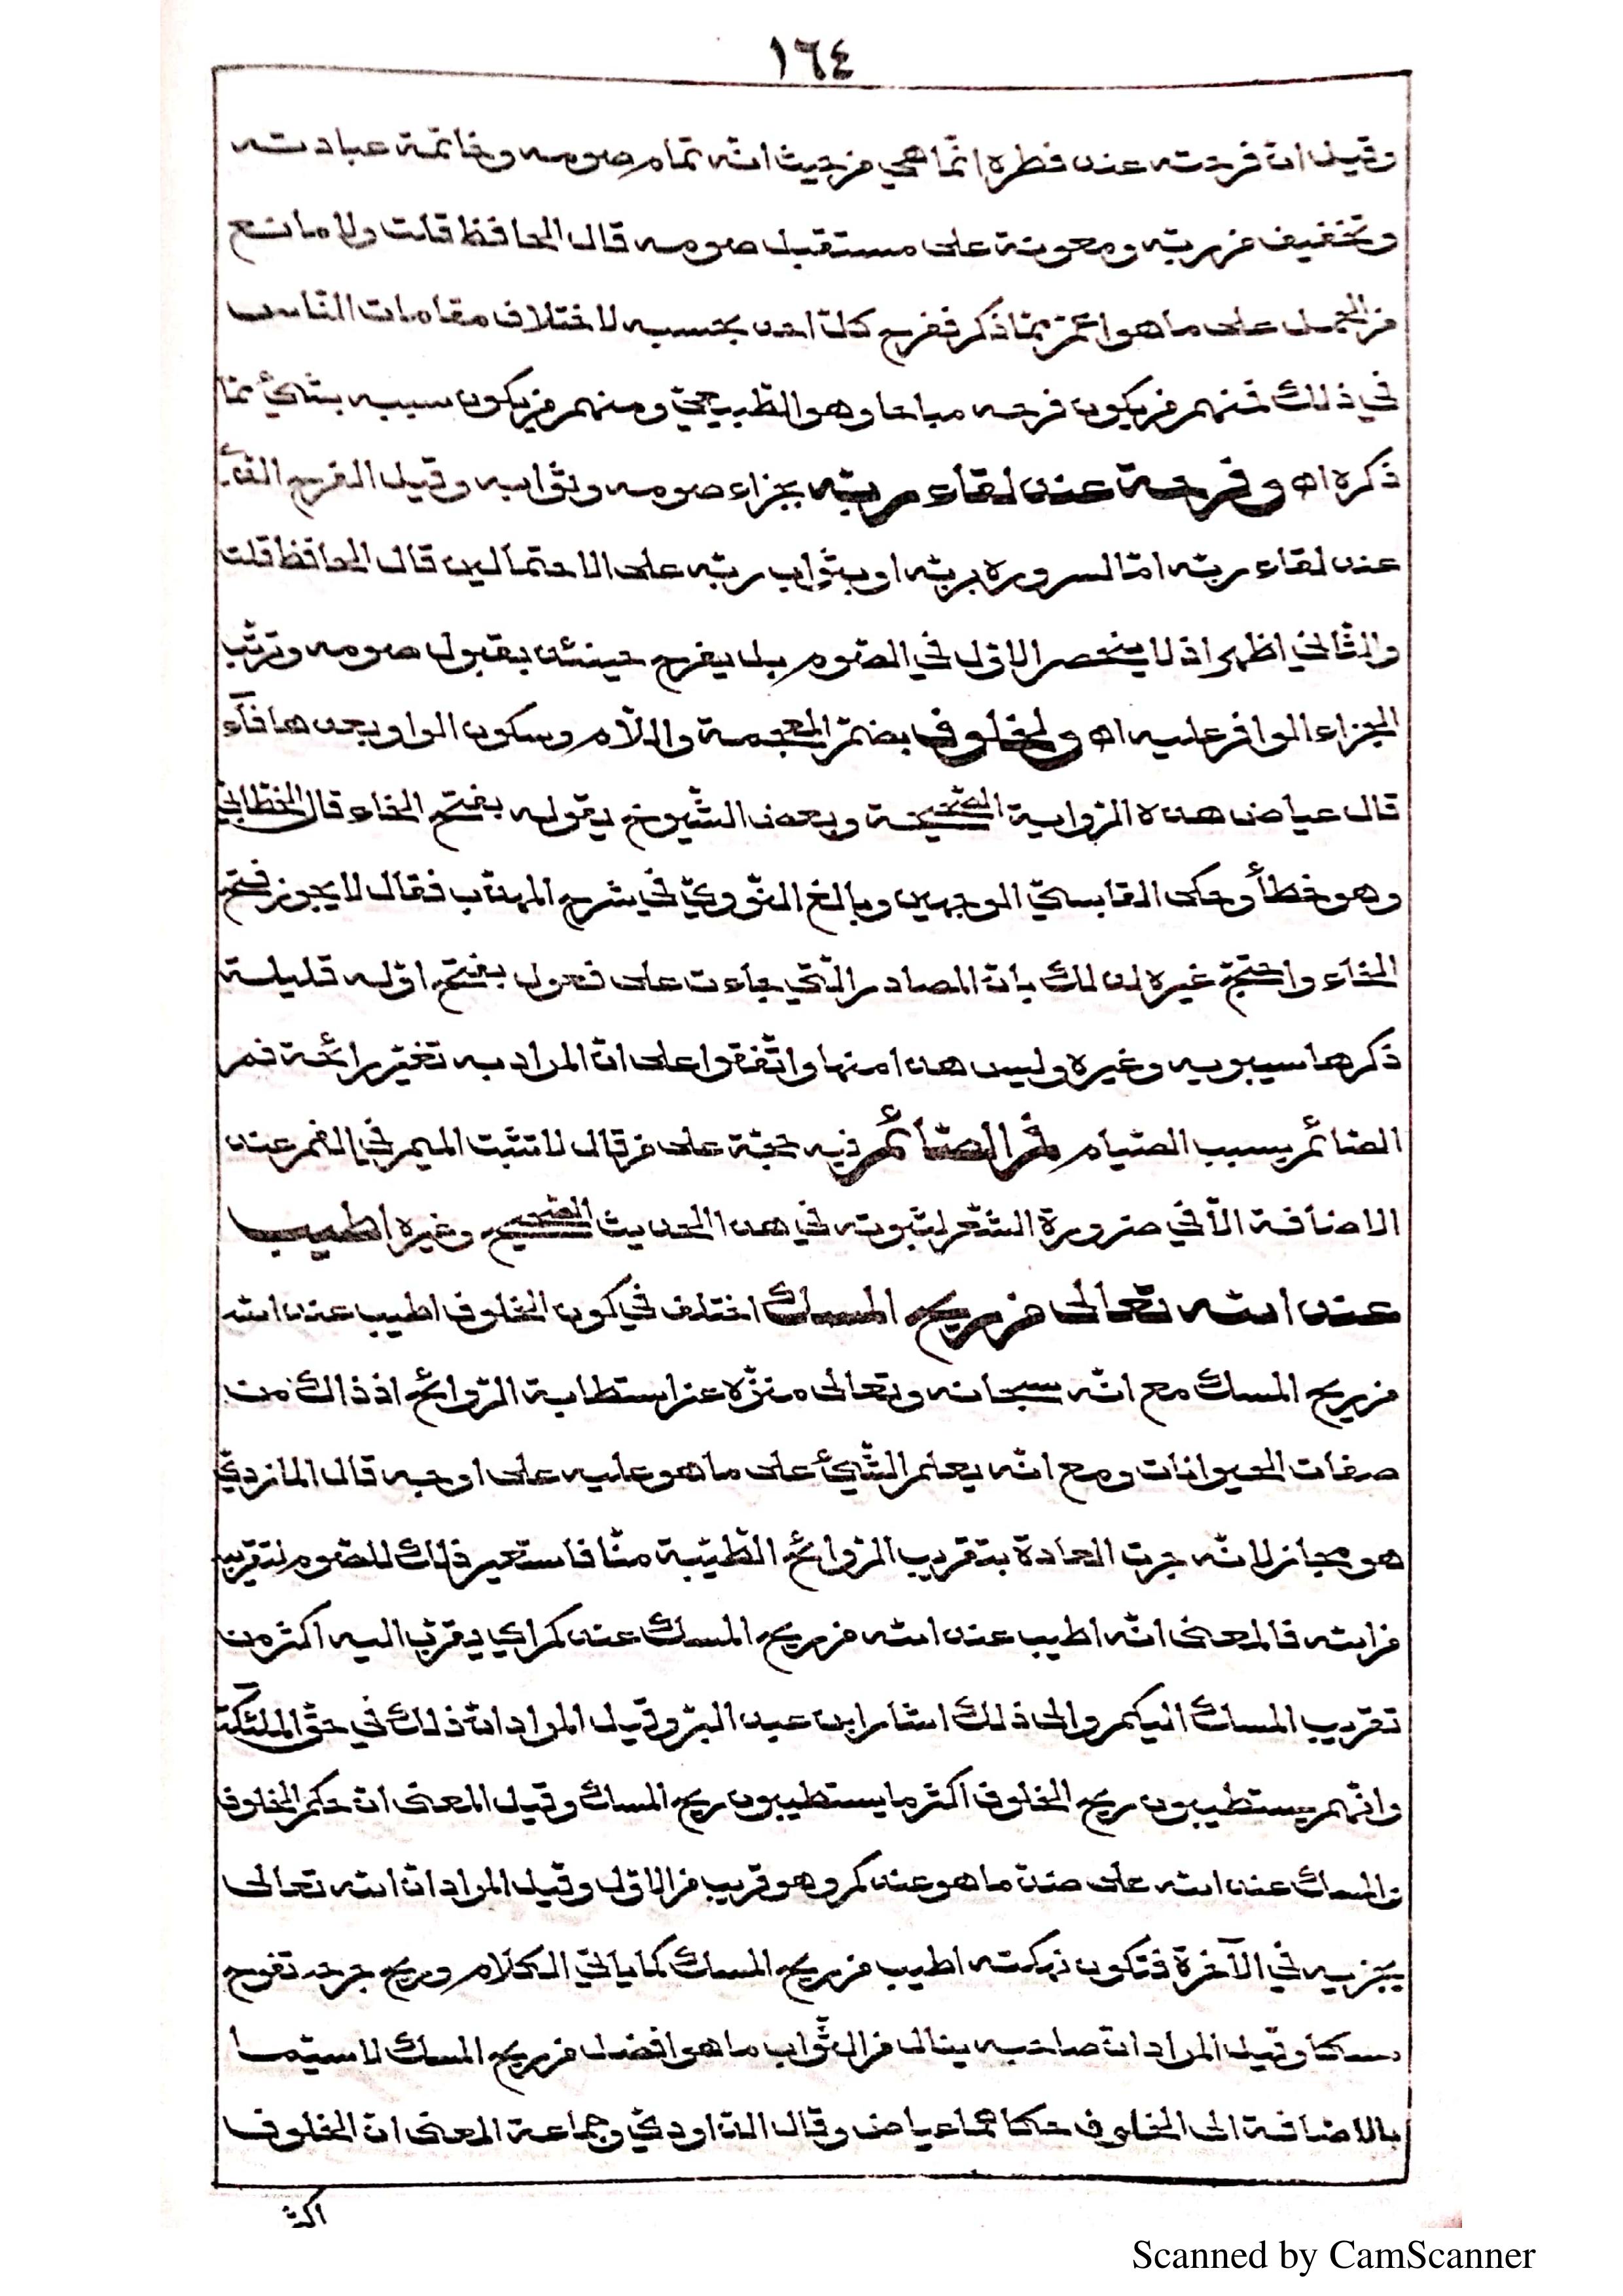 ١٦٤
وقيل انّ فرحته عند فطره انّما هي من حيث انّه تمام صومه وخاتمة عبادته
وتخفيف من ربّه ومعونة على مستقبل صومه قال الحافظ قلت ولا مانع
من الحمل على ما هو اعمّ ممّا ذكر ففرح كلّ احد بحسبه لاختلاف مقامات النّاس
في ذلك فمنهم من يكون فرحه مباحا وهو الطّبيعيّ ومنهم من يكون سببه بشيء ممّا
ذكره اه وفرحة عند لقاء ربّه بجزاء صومه وثوابه وقيل الفرح الّذي
عند لقاء ربّه امّا لسروره بربّه او بثواب ربّه على الاحتمالين قال الحافظ قلت
والثّاني اظهر اذ لا ينحصر الاوّل في الصّوم بل يفرح حينئذ بقبول صومه وترتّب
الجزاء الوافر عليه اه ولخلوف بضمّ المعجمة واللّام وسكون الواو بعدها فآء
قال عياض هذه الرّواية الصّحيحة وبعض الشّيوخ يقوله بفتح الخاء قال الخطّابيّ
وهو خطأ وحكى القابسيّ الوجهين وبالغ النّوويّ في شرح المهذّب فقال لا يجوز فتح
الخاء واحتجّ غيره لذلك بانّ المصادر الّتي جاءت على فعول بفتح اوّله قليلة
ذكرها سيبويه وغيره وليس هذا منها واتّفقوا على انّ المراد به تغيّر رائحة فم
الصّائم بسبب الصّيام فم الصّائم فيه حجّة على من قال لا تثبت الميم في الفم عند
الاضافة الّا في ضرورة الشّعر لثبوته في هذا الحديث الصّحيح وغيره اطيب
عند الله تعالى من ريح المسك اختلف في كون الخلوف اطيب عند الله
من ريح المسك مع انّه سبحانه وتعالى منزّه عن استطابة الرّوائح اذ ذاك من
صفات الحيوانات ومع انّه يعلم الشّيء على ما هو عليه على اوجه قال المازريّ
هو مجاز لانّه جرت العادة بتقريب الرّوائح الطّيّبة منّا فاستعير ذلك للصّوم لتقريبه
من الله فالمعنى انّه اطيب عند الله من ريح المسك عندكم اي يقرّب اليه اكثر من
تقريب المسك اليكم والى ذلك اشار ابن عبد البرّ وقيل المراد انّ ذلك في حقّ الملئكة
وانّهم يستطيبون ريح الخلوف اكثر ما يستطيبون ريح المسك وقيل المعنى انّ حكم الخلوف
والمسك عند الله على ضدّ ما هو عندكم وهو قريب من الاوّل وقيل المراد انّ الله تعالى
يجزيه في الآخرة فتكون نكهته اطيب من ريح المسك كما ياتي الكلام وريح جرحه تفوح
مسكا وقيل المراد انّ صاحبه ينال من الثّواب ما هو افضل من ريح المسك لا سيّما
بالاضافة الى الخلوف حكاهما عياض وقال الدّاوديّ وجماعة المعنى انّ الخلوف
اكثر
Scanned by CamScanner